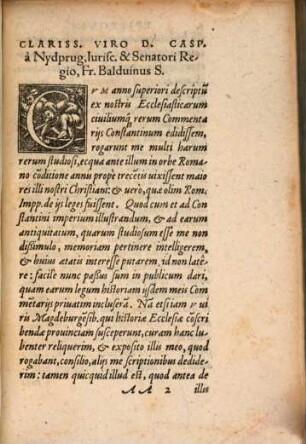 CLARISS. VIRO D. CASP.
à Nydprug, Iurisc. & Senatori Re-
gio, Fr. Balduinus S.
CVM anno superiori descriptũ
ex nostris Ecclesiasticarum
civiliumq; rerum Commenta
rijs Constantinum edidissem,
rogarunt me multi harum
rerum studiosi, ecqua ante illum in orbe Roma
no cõditione annu prope trecẽtis vixissent maio
res illi nostri Christiani: & vero, quæ olim Rom.
Impp. de ijs leges fuissent. Quod cum et ad Con
stantini imperium illustrandum, & ad earum
antiquitatum, quarum studiosum esse me non
dißimulo, memoriam pertinere intelligerem,
& huius ætatis interesse putarem, id non late-
re: facilè nunc paßus sum in publicum dari,
quam earum legum historiam ijsdem meis Com
mẽtarijs priuatim incluserã. Na etsi iam v
iris Magdeburgẽsib. qui historiæ Ecclesiæ cõscri
bendæ prouinciam susceperunt, curam hanc lu
benter reliquerim, & exposito illis meo, quod
rogabant, consilio, alijs me scriptionibus dedide-
rim: tamen quicquid illud est, quod antea de
AA 2 illis